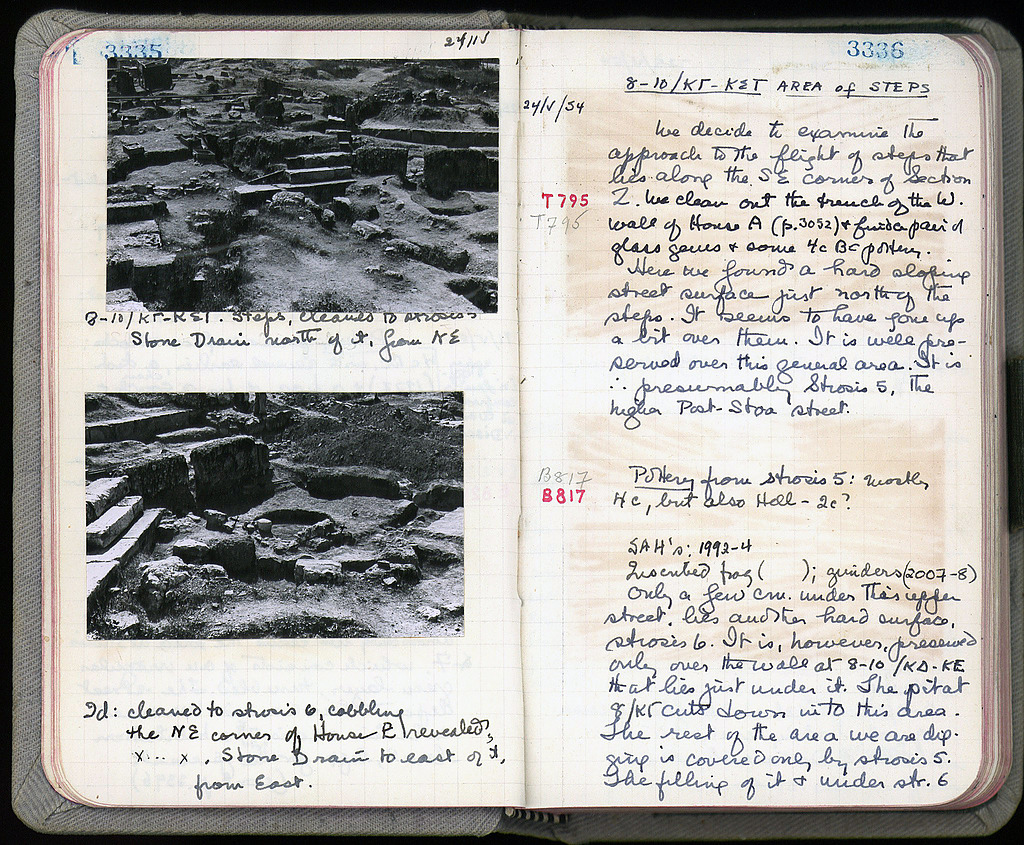 3335
24/V
8-10/ΚΓ-ΚΣΤ. Steps, cleaned to strosis 5
Stone Drain north of it, from NE
Id: cleaned to strosis 6, cobbling
the NE corner of House revealed,
x....x , Stone Drain to east of it,
from East.
3336
8-10/ΚΓ-ΚΣΤ AREA of STEPS
24/V/54
We decide to examine the
approach to the flight of steps that
lies along the SE corner of Section
Z. We clean out the trench of the W.
T795
T795
wall of House A (p.3052) & find a pair of
glass gems & some 4c BC pottery.
Here we found a hard sloping
street surface just north of the
steps. It seems to have gone up
a bit over them. It is well pre-
served over this general area. It is
∴ presumably Strosis 5, the
higher Post-Stoa street.
B817
B817
Pottery from strosis 5: mostly
4c, but also Hell - 2c?
SAH's: 1992-4
Inscribed frag ( ); grinders (2007-8)
Only a few cm. under this upper
street, lies another hard surface,
strosis 6. It is, however, preserved
only over the wall at 8-10/ΚΔ-ΚΕ
that lies just under it. The pit at
8/ΚΓ cuts down into this area.
The rest of the area we are dig-
ging is covered only by strosis 5.
The filling of it & under str. 6